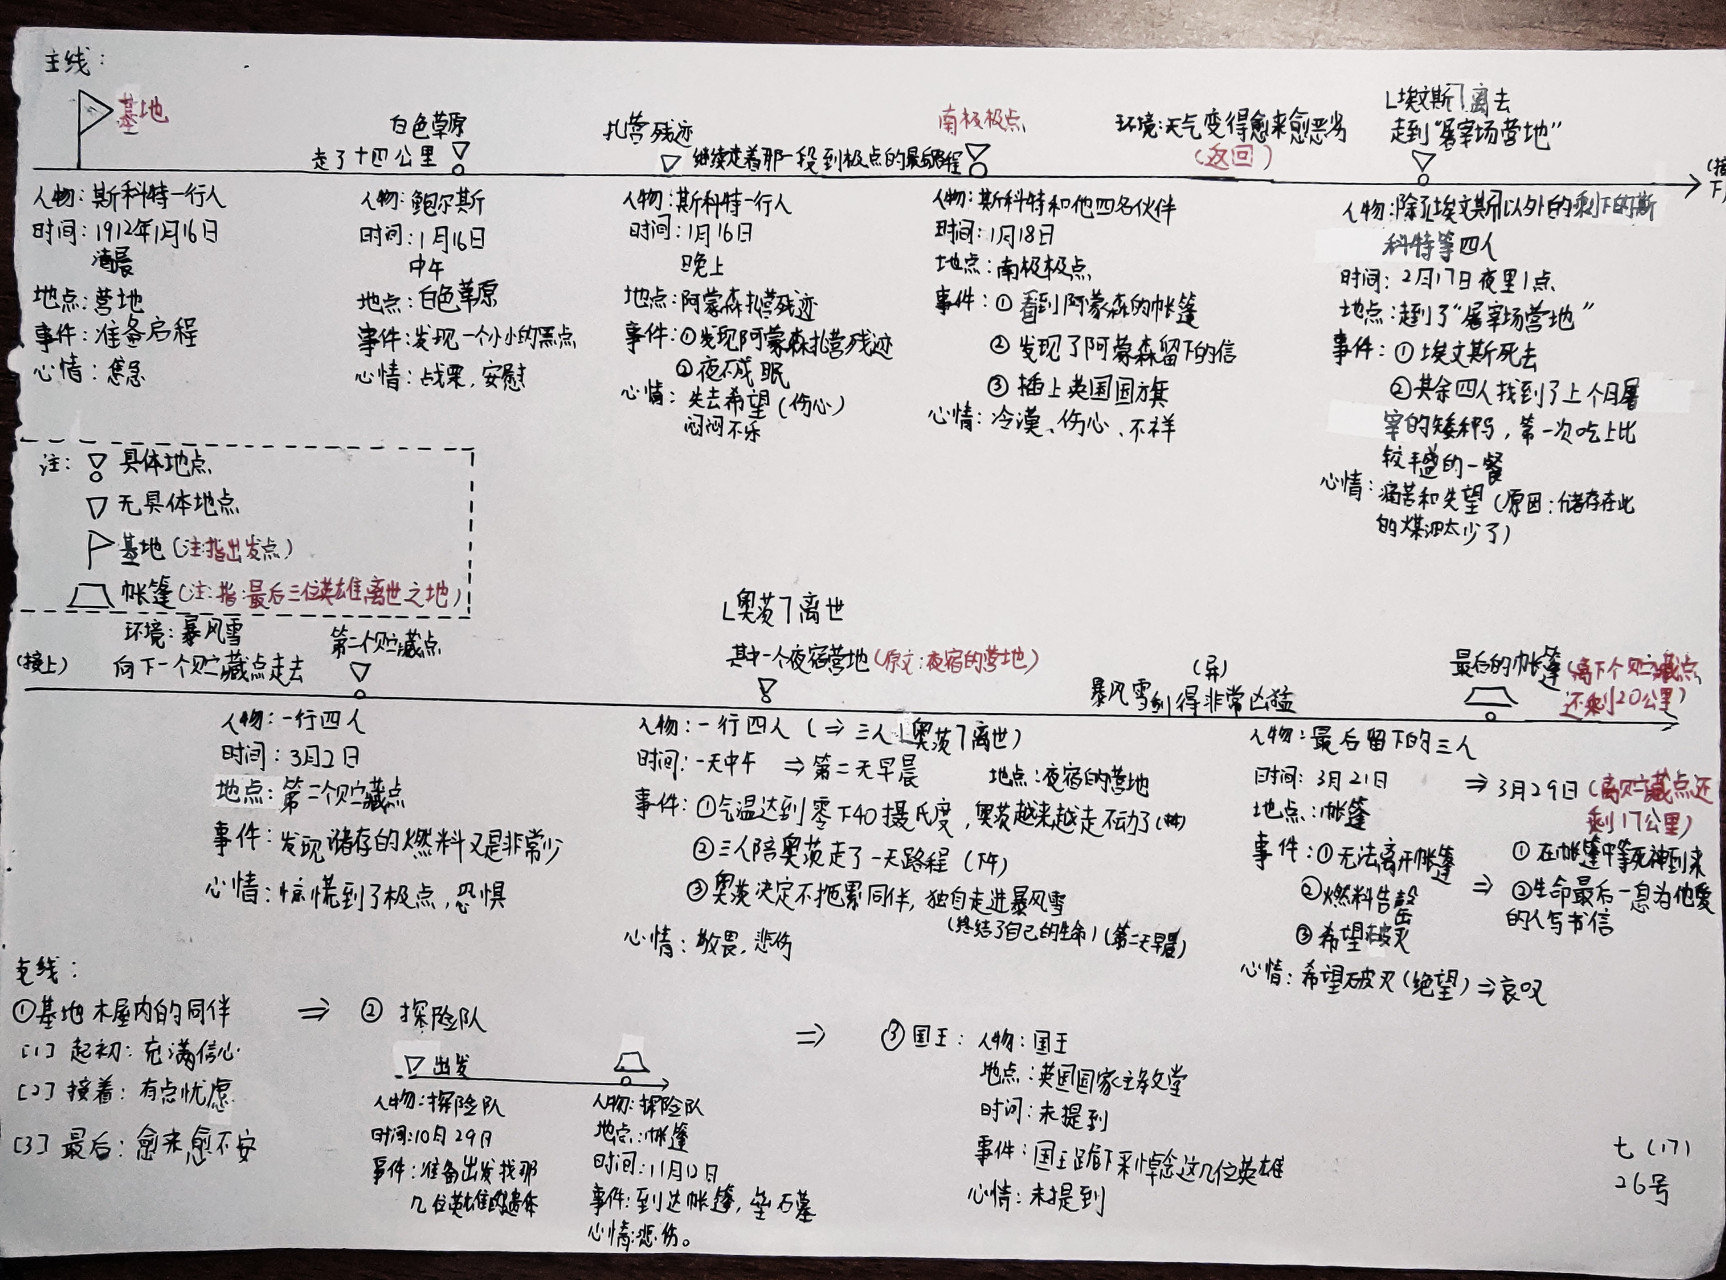 主线：
基地
白色草原
走了十四公里
扎营残迹
继续走着那一段到极点的最后路程
南极极点
环境：天气变得愈来愈恶劣
（返回）
L埃文斯7离去
走到“屠宰场营地”
（接下）
人物：斯科特一行人
时间：1912年1月16日
清晨
地点：营地
事件：准备启程
心情：焦急
人物：鲍尔斯
时间：1月16日
中午
地点：白色草原
事件：发现一个小小的黑点
心情：战栗，安慰
人物：斯科特一行人
时间：1月16日
晚上
地点：阿蒙森扎营残迹
事件：①发现阿蒙森扎营残迹
②夜不成眠
心情：失去希望（伤心）
闷闷不乐
人物：斯科特和他四名伙伴
时间：1月18日
地点：南极极点
事件：①看到阿蒙森的帐篷
②发现了阿蒙森留下的信
③插上英国国旗
心情：冷漠、伤心、不祥
人物：除了埃文斯以外的剩下的斯
科特等四人
时间：2月17日夜里1点
地点：走到了“屠宰场营地”
事件：①埃文斯死去
②其余四人找到了上个月屠
宰的矮种马，第一次吃上比
较丰盛的一餐
心情：痛苦和失望（原因：储存在此
的煤油太少了）
注：具体地点
无具体地点
基地（注：指出发点）
帐篷（注：指：最后三位英雄离世之地）
（接上）
环境：暴风雪
向下一个贮藏点走去
第二个贮藏点
L奥茨7离世
其中一个夜宿营地（原文：夜宿的营地）
（异）
暴风雪刮得非常凶猛
最后的帐篷（离下个贮藏点
还剩20公里）
人物：一行四人
时间：3月2日
地点：第二个贮藏点
事件：发现储存的燃料又是非常少
心情：惊慌到了极点，恐惧
人物：一行四人（⇒三人L奥茨7离世）
时间：一天中午 ⇒ 第二天早晨
地点：夜宿的营地
事件：①气温达到零下40摄氏度，奥茨越来越走不动了
②三人陪奥茨走了一天路程（下午）
③奥茨决定不拖累同伴，独自走进暴风雪
（终结了自己的生命）（第二天早晨）
心情：敬畏，悲伤
人物：最后留下的三人
时间：3月21日 ⇒ 3月29日（离贮藏点还
剩17公里）
地点：帐篷
事件：①无法离开帐篷
②燃料告罄
③希望破灭
⇒
①在帐篷中等死神到来
②生命最后一息为他爱
的人写书信
心情：希望破灭（绝望）⇒哀叹
支线：
①基地木屋内的同伴
[1] 起初：充满信心
[2] 接着：有点忧虑
[3] 最后：愈来愈不安
⇒ ②探险队
出发
人物：探险队
时间：10月29日
事件：准备出发找那
几位英雄的遗体
人物：探险队
地点：帐篷
时间：11月12日
事件：到达帐篷，垒石墓
心情：悲伤。
⇒ ③国王：人物：国王
地点：英国国家主教堂
时间：未提到
事件：国王跪下来悼念这几位英雄
心情：未提到
七（17）
26号